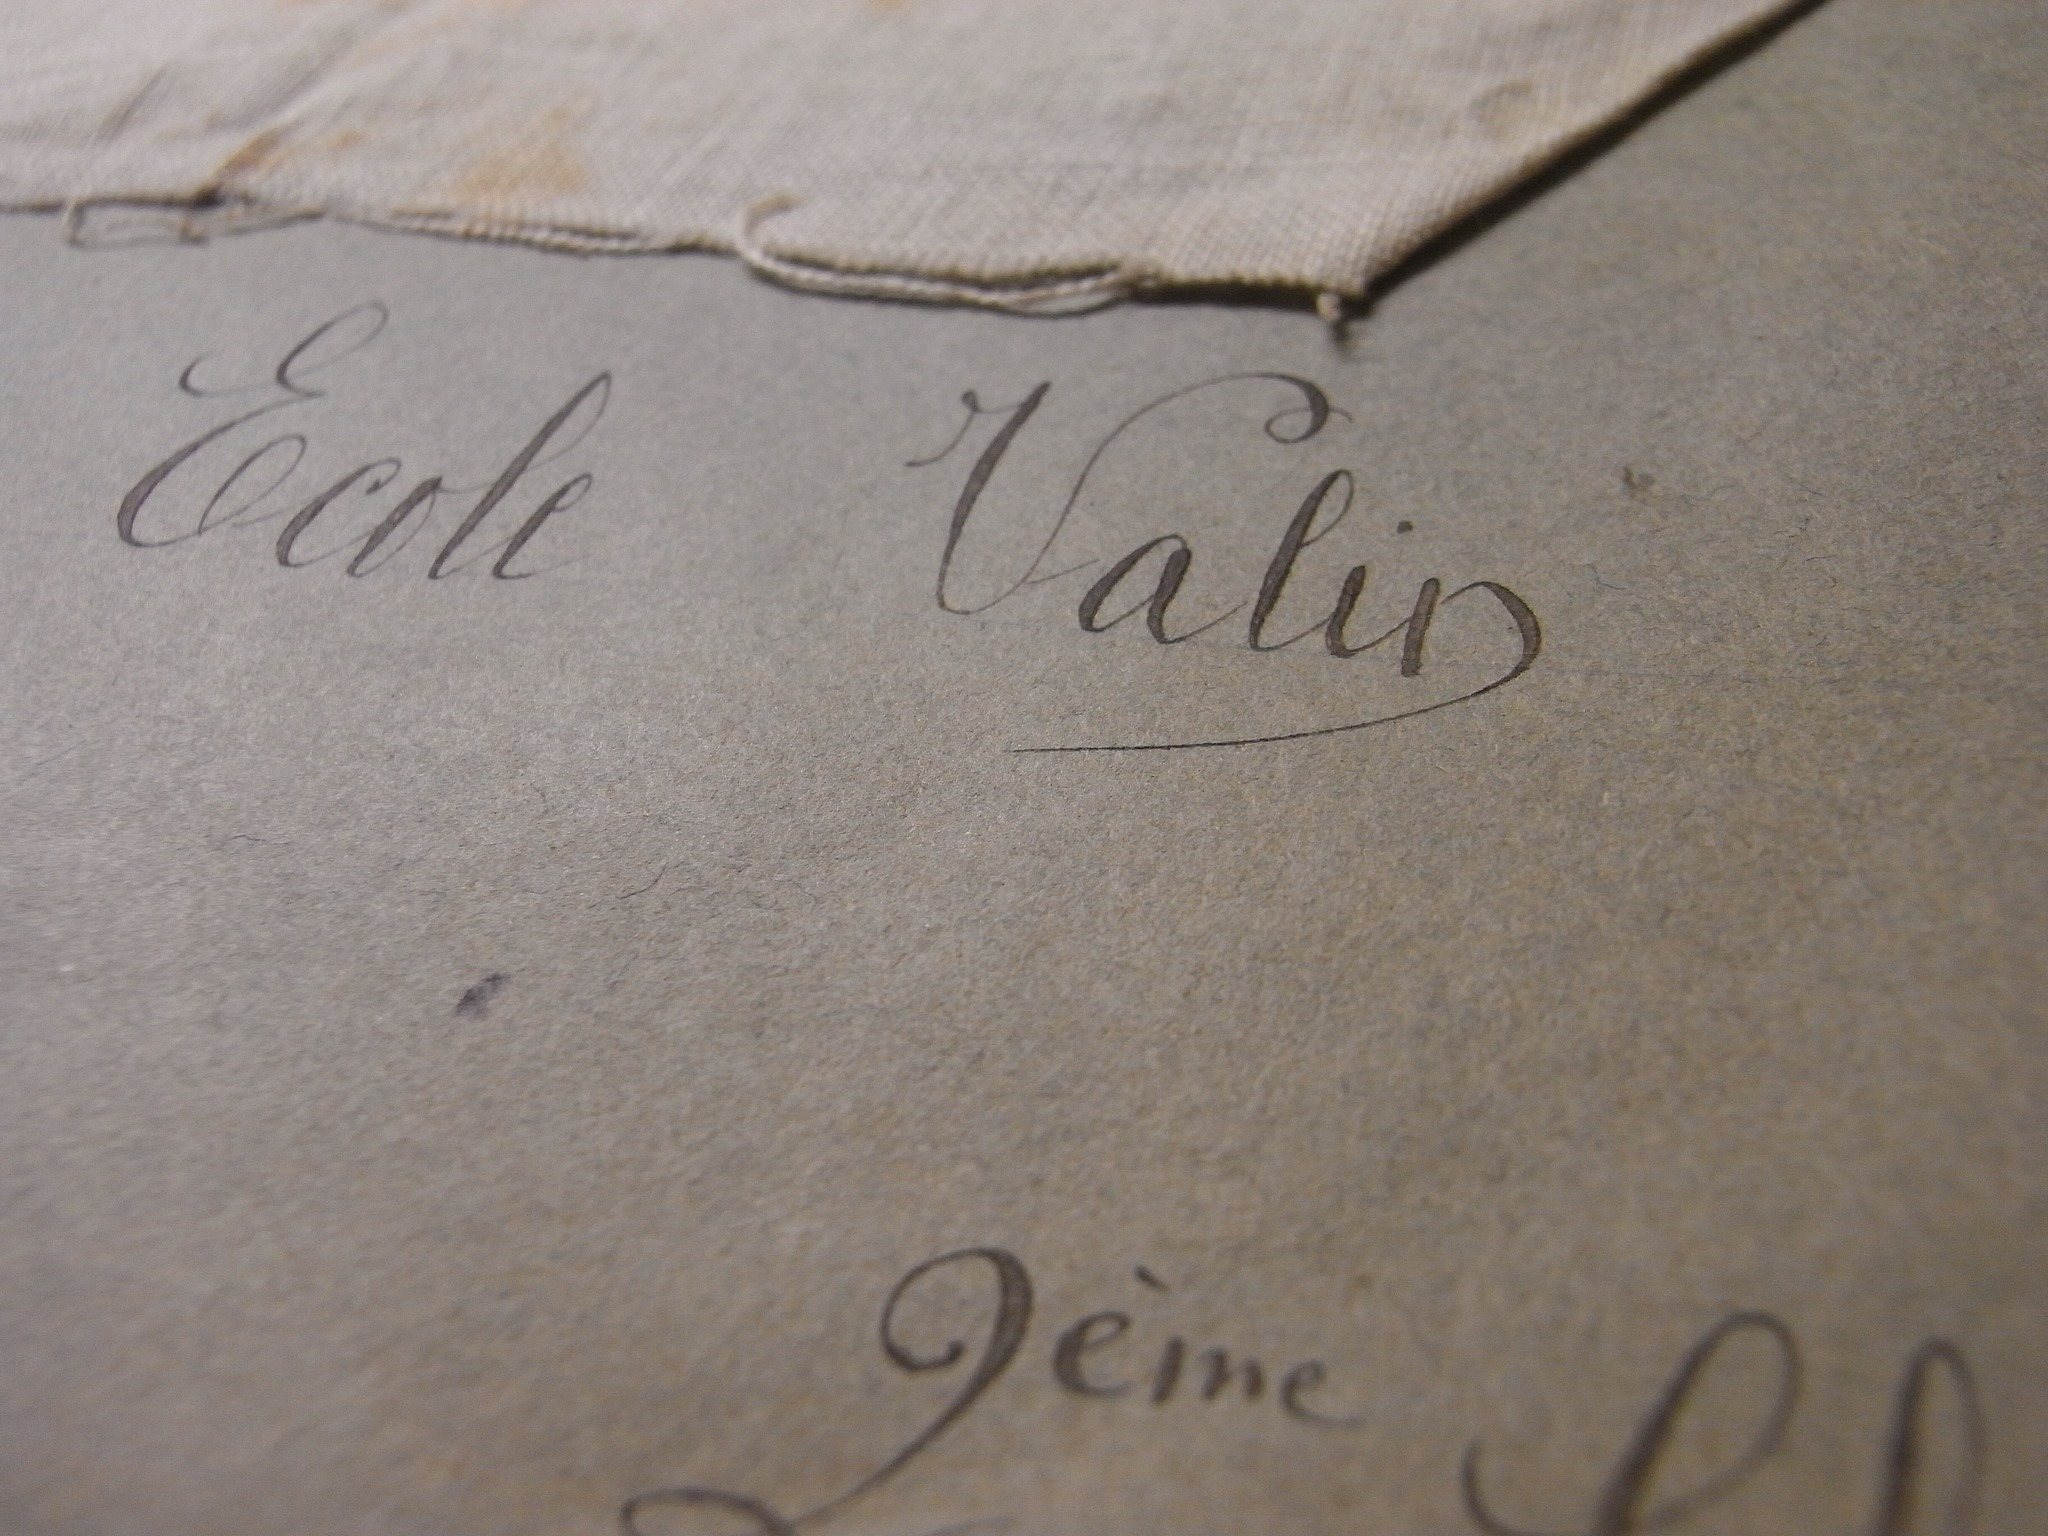 Ecole Valin
9ème